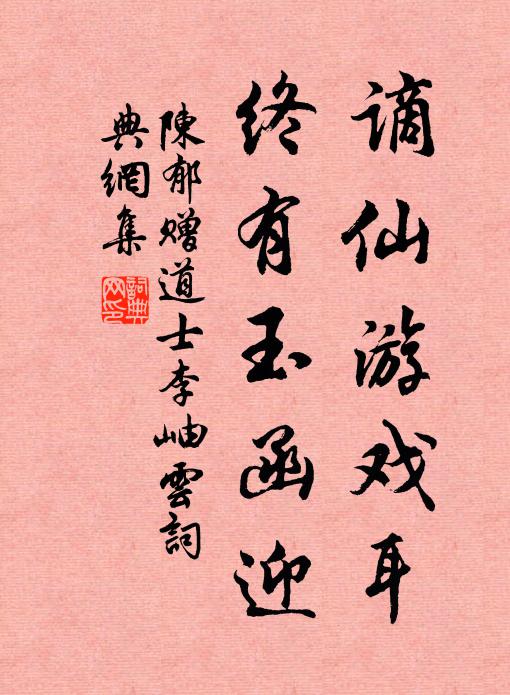 谪仙游戏耳
终有玉函迎
陳郁赠道士李岫雲詞
典網集
詞典
网印